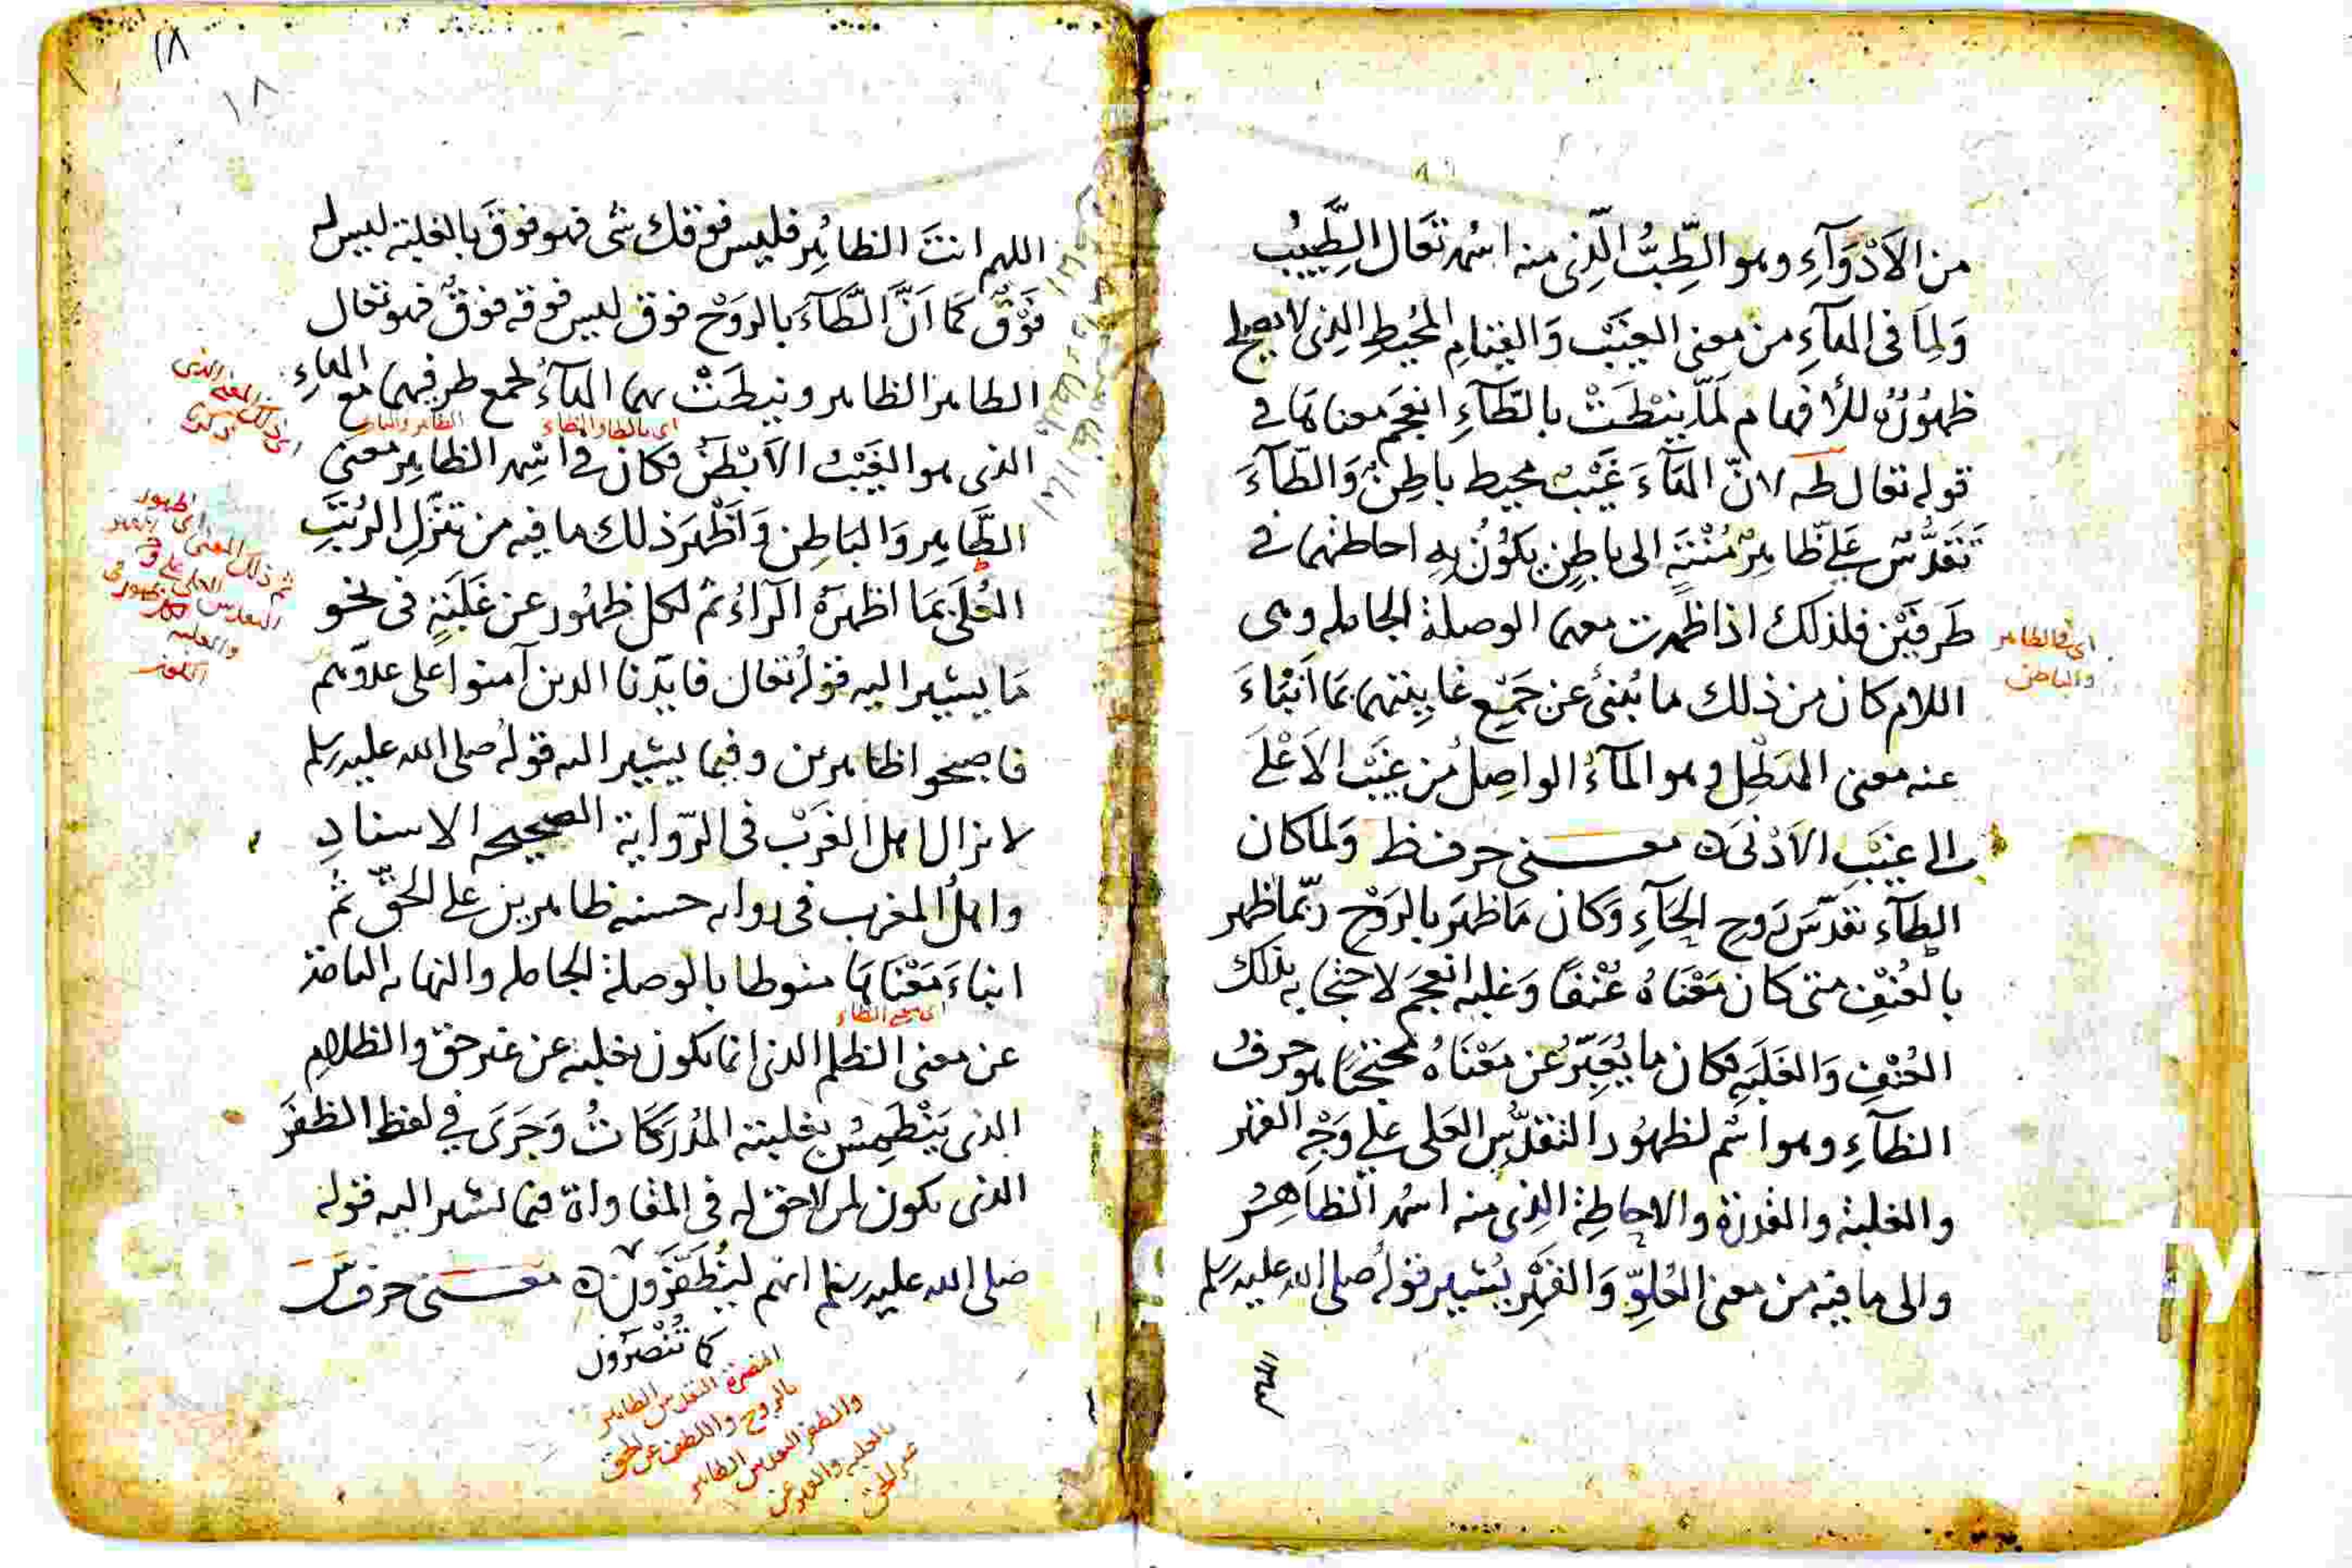 من الأَدْوَآءِ وهو الطِّبُّ الَّذِى منه اسْمُه تَعَالى الطَّبِيْبُ
وَلِمَا فى الهَآءِ من معنى الغَيْبِ وَالغِيَامِ المُحِيْطِ الذى لا يصح
ظهُوْرُه للأفهام لَمَّا نِيْطَتْ بالطَّآءِ انعَجَم معناهما فى
قوله تعالى طه لانّ الهَآءَ غَيْبٌ محيط باطِنٌ وَالطَّآءَ
تَقَدُّسٌ عَلِىٌّ ظَاهِرٌ مُنْتَهٍ الى باطِنٍ يكوُنُ بِهِ احاطتهما فى
طَرفَيْن فلذلك اذا ظهرت معهما الوصلة الجامله وهى
اى فى الظاهر
والباطن
اللام كان من ذلك ما يُنبئُ عن جَمْعِ غَايتيهما بما اَنْبَاءَ
عنه معنى الهَطْلِ وهو المَآءُ الواصِلُ من غيْبِ الاَعْلَى
الى غيْبِ الاَدْنَى ه معنى حرف ظ وَلما كان
الطآء تقدّسَ رَوحِ الحَآءِ وَكان مَا ظهَرَ بالرَوْحِ ربّما ظهر
بالعُنْفِ متى كان مَعْنَاهُ عُنْفًا وَغلبه انعجَمَ لاحتجابه بذلك
العُنْفِ وَالغَلَبَةِ فكان ما يُعَبّرُ عن مَعْنَاهُ محتجبًا هو حرفُ
الظآءِ وهو اسْم لظهُورِ التقدُّسِ العَلى على وَجْهِ القهر
والغلبة والقدرة والاحاطة الذى منه اسْمُه الظاهِرُ
والى ما فيه من معنى العُلوِّ وَالقَهْرِ يُشير قوله صلى الله عليه وسلم
اللهم
١٨
١٨
اللهم انتَ الظاهِر فليس فوقك شى فهو فوقَ بالغلبة ليس له
فَوْقٌ كَمَا اَنَّ الطَّآءَ بالرَوْح فوق ليس فوقه فوقٌ فهو تعالى
الطاهر الظاهر ونيطَتْ بهما الهآءُ لجمع طرفيهما مع الهاءِ
اى بالطاء والظاء الظاهر والباطن
الذى هو الغَيْبُ الاَبْطَنُ فكان فى اسْمِه الظاهِر معنى
الظَّاهِر وَالبَاطِن وَاَظْهَرَ ذلك ما فيه من تنَزُّلِ الرُتَبِ
العُلَى بمَا اظهرَهُ الرّاءُ ثمّ لكل ظهُور عن غَلَبَةٍ فى نحو
مَا يشير اليه قولُه تعالى فايّدنا الذين آمنوا على عدوّهم
فاصبحوا ظاهرين وفيما يشير اليه قوله صلى الله عليه وسلم
لا يزال اهل الغَرْب فى الرّواية الصحيحه الاسنادِ
واهلُ المغرب فى روايه حسنه ظاهرين على الحَقّ ثُمَّ
انبَاءَ مَعْنَاهَا منوطا بالوصلة الجامله والنهايه
اى معنى الظاء
عن معنى الظلم الذى انما يكون بغلبة عن غير حق والظلامِ
الذى يَنْطَمِسُ بغلبته المُدْرَكَاتُ وَجَرَىَ فى لفظ الظفَرَ
الذى يكون لمن لا حق له فى المقاواة فيما يشير اليه قوله
صلى الله عليه وسلم انهم ليُظَفَّرُون ه معنى حرف
كما تُنْصَرُون
النصرة التقدس الظاهر
بالروح واللطف عن الحق
والظفر التقدس الظاهر
بالغلبة والقهر عن
غير الحق